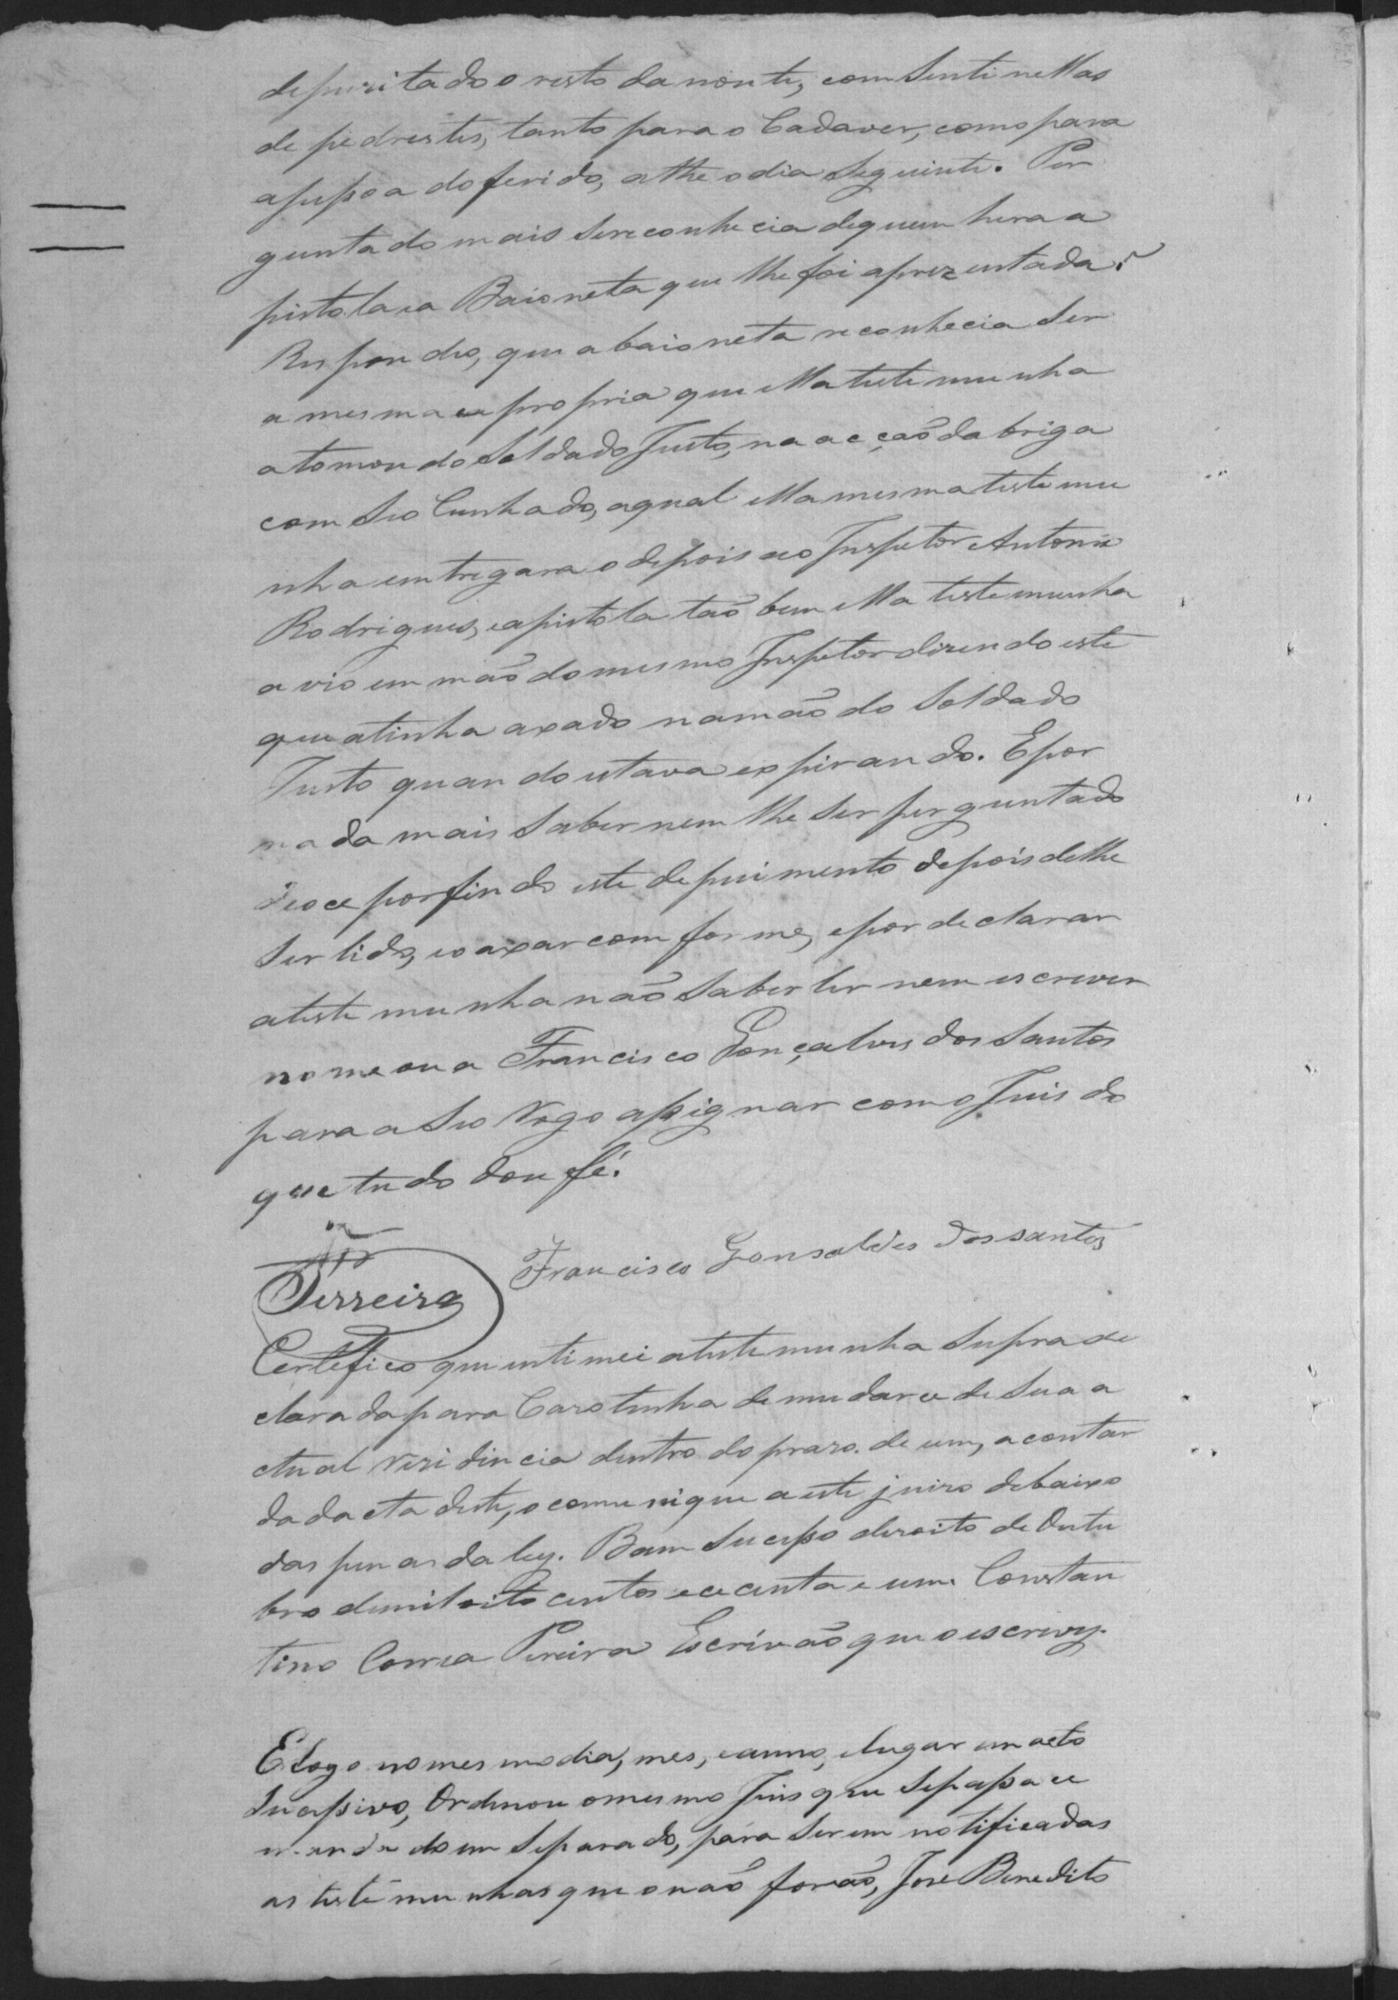 depuzitado o resto da nonte, com Sentinellas
de pedrestes, tanto para o Cadaver, como para
apessoa do ferido, athe o dia Seguinte. Per
guntado mais Sereconhecia dequem hera a
pistola ea Baioneta que lhe foi aprezentada?
Respondeo, que abaioneta reconhecia Ser
a mesma ea propria que ella testemunha
atomou do Soldado Justo, na acção da briga
com Seo Cunhado, aqual ella mesma testemu
nha emtregara o depois ao Inspetor Antonio
Rodrigues, eapistola tão bem ella testemunha
a vio em mão do mesmo Inspetor dizendo este
que atinha axado namão do Soldado
Justo quando estava expirando. Epor
nada mais Saber nem lhe Ser perguntado
deoce porfindo este depuimento depois delhe
Ser lido, eo axar comforme, epor declarar
atestemunha não Saber ler nem escrever
nomeou a Francisco Gonçalves dos Santos
para a Seo Rogo assignar com o Juis do
que tudo dou fé.
Francisco Gonsalves dos santos
Ferreira
Certefico que intimei atestemunha Supra de
clarada para Cazo tenha de mudarce de Sua a
ctual Rezidincia dentro do prazo de um, acontar
da dacta deste, o comunique a este juizo debaixo
das penas da ley. Bom Sucesso dezoito de Outu
bro demil oito centos ececenta e um. Constan
tino Correa Pereira Escrivão que o escrevy.
Elogo no mesmo dia, mes, eanno, elugar em acto
Sucessivo, Ordenou o mesmo Juis que Sepassace
mandado em Separado, para Serem notificadas
as testemunhas que o não forão, José Benedito